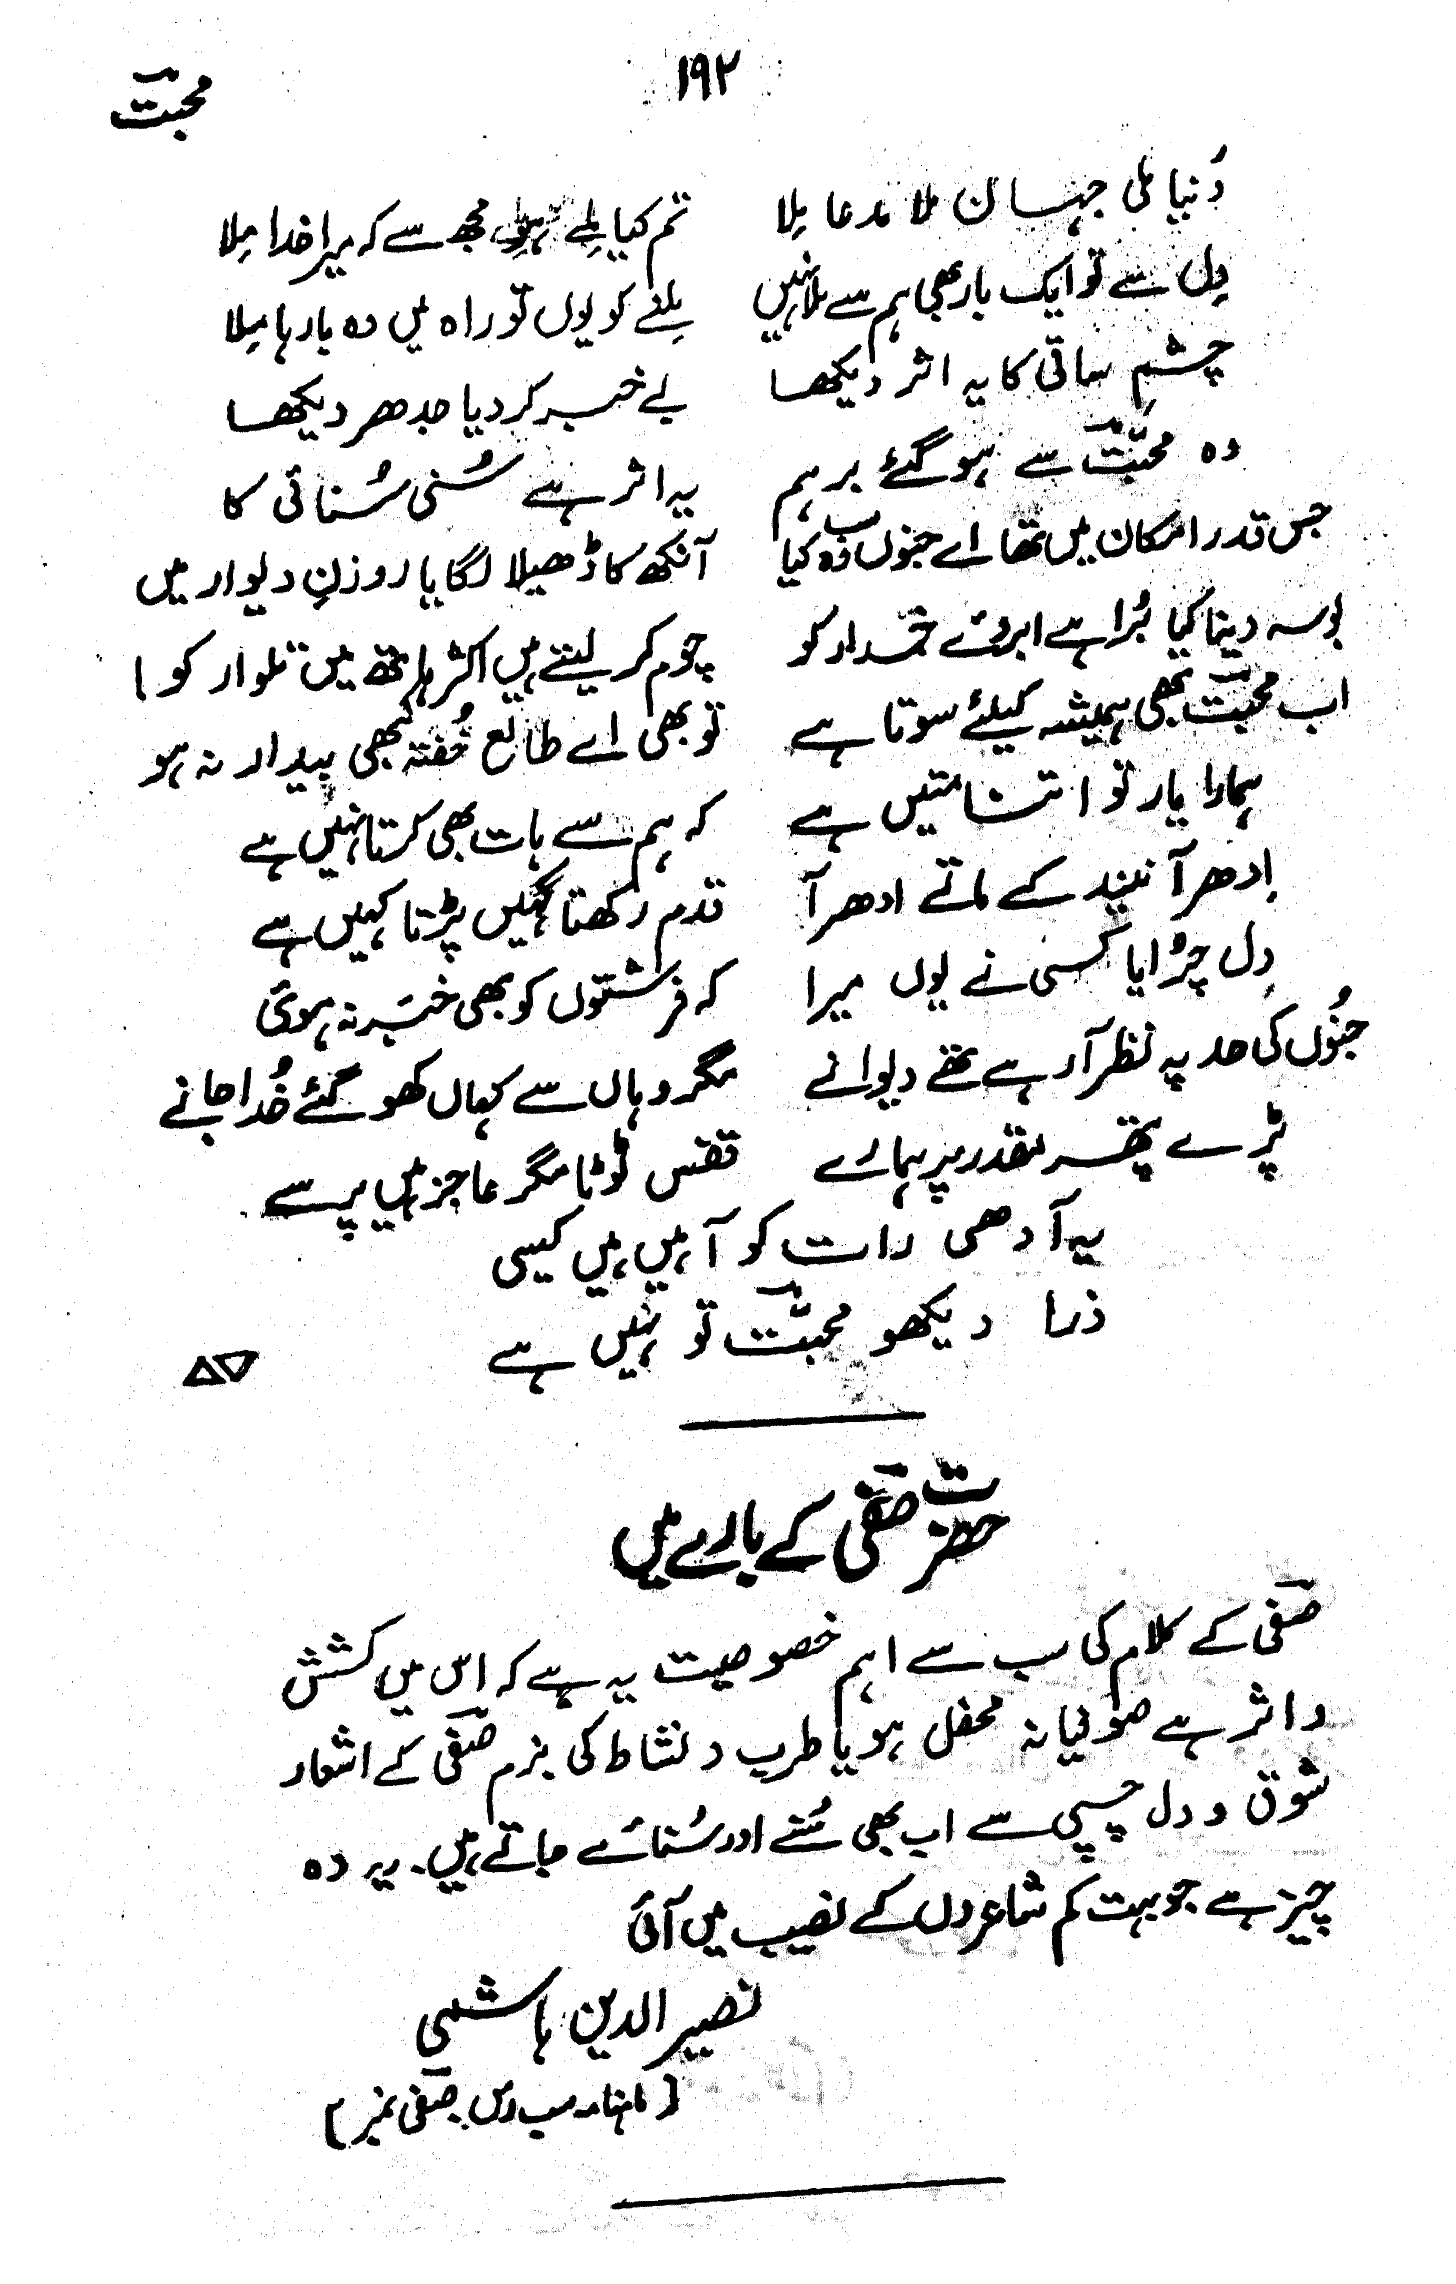 ۱۹۲
محبتؔ
دُنیا ملی جہان ملا مدعا مِلا تم کیا مِلے ہو مجھ سے کہ میرا خدا مِلا
دِل سے تو ایک بار بھی ہم سے ملا نہیں مِلنے کو یوں تو راہ میں وہ بارہا مِلا
چشمِ ساقی کا یہ اثر دیکھا بے خبر کر دیا جدھر دیکھا
وہ محبّتؔ سے ہو گئے برہم یہ اثر ہے سُنی سُنائی کا
جس قدر امکان میں تھا اے جنوں سب وہ کیا آنکھ کا ڈھیلا لگایا روزنِ دیوار میں
بوسہ دینا کیا بُرا ہے ابروئے خمدار کو چوم کر لیتے ہیں اکثر ہاتھ میں تلوار کو
اب محبّتؔ بھی ہمیشہ کیلئے سوتا ہے تو بھی اے طالع خُفتہ کبھی بیدار نہ ہو
ہمارا یار تو اتنا متیں ہے کہ ہم سے بات بھی کرتا نہیں ہے
اِدھر آ نیند کے ماتے ادھر آ قدم رکھتا کہیں پڑتا کہیں ہے
دِل چُرایا کسی نے یوں میرا کہ فرشتوں کو بھی خبر نہ ہوئی
جنُوں کی حد پہ نظر آ رہے تھے دیوانے مگر وہاں سے کہاں کھو گئے خُدا جانے
پڑے پتھر مقدر پر ہمارے قفس ٹوٹا مگر عاجز ہیں پر سے
یہ آدھی رات کو آہیں ہیں کیسی
ذرا دیکھو محبّتؔ تو نہیں ہے
حضرت صفیؔ کے بارے میں
صفیؔ کے کلام کی سب سے اہم خصوصیت یہ ہے کہ اس میں کشش
و اثر ہے صوفیانہ محفل ہو یا طرب و نشاط کی بزم صفیؔ کے اشعار
شوق و دل چسپی سے اب بھی سُنے اور سُنائے جاتے ہیں۔ یہ وہ
چیز ہے جو بہت کم شاعروں کے نصیب میں آئی
نصیر الدین ہاشمی
[ماہنامہ سب رس صفیؔ نمبر]